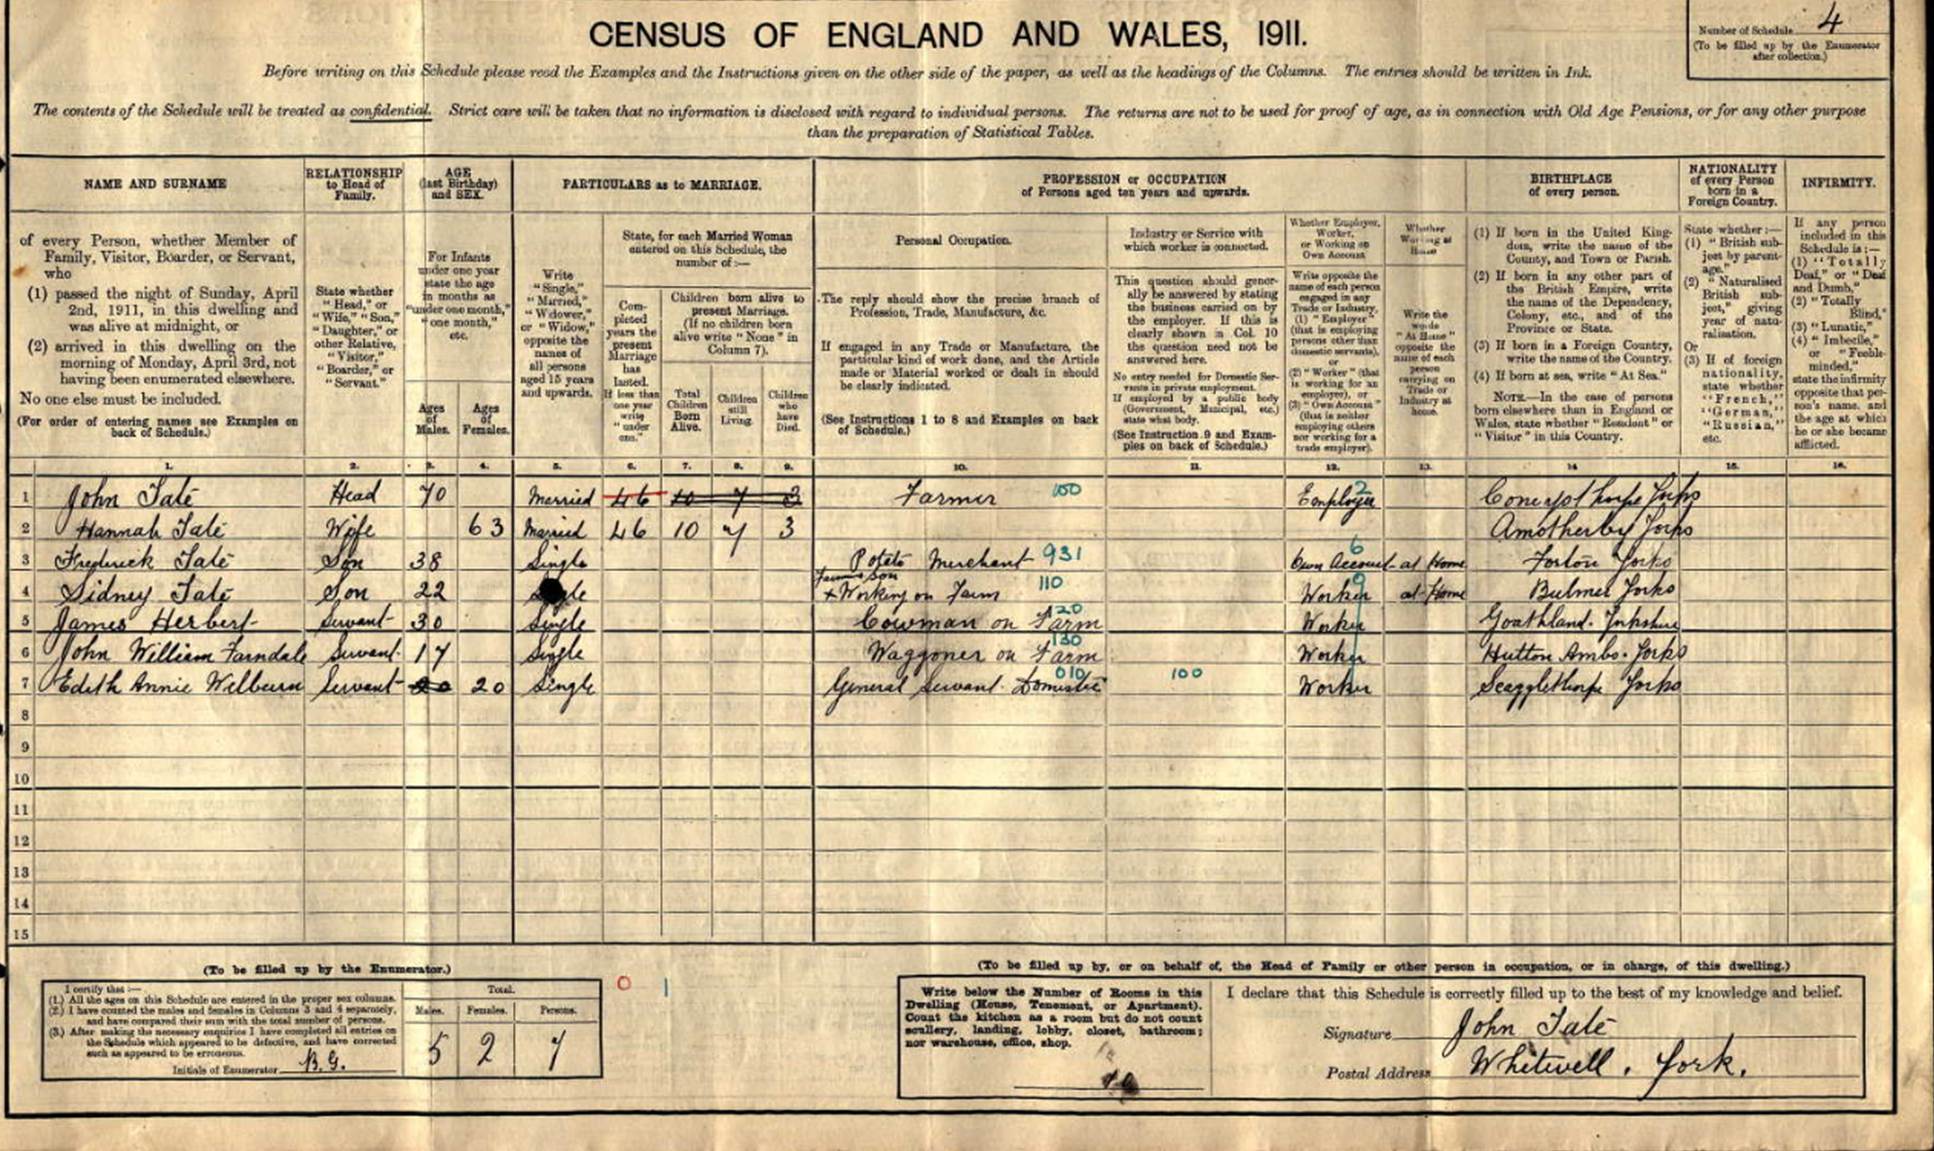 CENSUS OF ENGLAND AND WALES, 1911.
Number of Schedule 4
(To be filled up by the Enumerator
after collection.)
Before writing on this Schedule please read the Examples and the Instructions given on the other side of the paper, as well as the headings of the Columns. The entries should be written in Ink.
The contents of the Schedule will be treated as confidential. Strict care will be taken that no information is disclosed with regard to individual persons. The returns are not to be used for proof of age, as in connection with Old Age Pensions, or for any other purpose
than the preparation of Statistical Tables.
NAME AND SURNAME
RELATIONSHIP
to Head of
Family.
AGE
(last Birthday)
and SEX.
PARTICULARS as to MARRIAGE.
PROFESSION or OCCUPATION
of Persons aged ten years and upwards.
BIRTHPLACE
of every person.
NATIONALITY
of every Person
born in a
Foreign Country.
INFIRMITY.
of every Person, whether Member of
Family, Visitor, Boarder, or Servant,
who
(1) passed the night of Sunday, April
2nd, 1911, in this dwelling and
was alive at midnight, or
(2) arrived in this dwelling on the
morning of Monday, April 3rd, not
having been enumerated elsewhere.
No one else must be included.
(For order of entering names see Examples on
back of Schedule.)
State whether
"Head," or
"Wife," "Son,"
"Daughter," or
other Relative,
"Visitor,"
"Boarder," or
"Servant."
For Infants
under one year
state the age
in months as
"under one month,"
"one month,"
etc.
Ages
of
Males.
Ages
of
Females.
Write
"Single,"
"Married,"
"Widower,"
or "Widow,"
opposite the
names of
all persons
aged 15 years
and upwards.
State, for each Married Woman
entered on this Schedule, the
number of:—
Com-
pleted
years the
present
Marriage
has
lasted.
If less than
one year
write
"under
one."
Children born alive to
present Marriage.
(If no children born
alive write "None" in
Column 7).
Total
Children
Born
Alive.
Children
still
Living.
Children
who
have
Died.
Personal Occupation.
The reply should show the precise branch of
Profession, Trade, Manufacture, &c.
If engaged in any Trade or Manufacture, the
particular kind of work done, and the Article
made or Material worked or dealt in should
be clearly indicated.
(See Instructions 1 to 8 and Examples on back
of Schedule.)
Industry or Service with
which worker is connected.
This question should gener-
ally be answered by stating
the business carried on by
the employer. If this is
clearly shown in Col. 10
the question need not be
answered here.
No entry needed for Domestic Ser-
vants in private employment.
If employed by a public body
(Government, Municipal, etc.)
state what body.
(See Instruction 9 and Exam-
ples on back of Schedule.)
Whether Employer,
Worker,
or Working on
Own Account
Write opposite the
name of each person
engaged in any
Trade or Industry,
(1) "Employer"
(that is employing
persons other than
domestic servants),
or
(2) "Worker" (that
is working for an
employer), or
(3) "Own Account"
(that is neither
employing others
nor working for a
trade employer).
Whether
Working at
Home
Write the
words
"At Home"
opposite the
name of each
person
carrying on
Trade or
Industry at
home.
(1) If born in the United King-
dom, write the name of the
County, and Town or Parish.
(2) If born in any other part of
the British Empire, write
the name of the Dependency,
Colony, etc., and of the
Province or State.
(3) If born in a Foreign Country,
write the name of the Country.
(4) If born at sea, write "At Sea."
NOTE—In the case of persons
born elsewhere than in England or
Wales, state whether "Resident" or
"Visitor" in this Country.
State whether:—
(1) "British sub-
ject by parent-
age."
(2) "Naturalised
British sub-
ject," giving
year of natu-
ralisation.
Or
(3) If of foreign
nationality,
state whether
"French,"
"German,"
"Russian,"
etc.
If any person
included in this
Schedule is:—
(1) "Totally
Deaf," or "Deaf
and Dumb,"
(2) "Totally
Blind,"
(3) "Lunatic,"
(4) "Imbecile,"
or "Feeble-
minded,"
state the infirmity
opposite that per-
son's name, and
the age at which
he or she became
afflicted.
1. 2. 3. 4. 5. 6. 7. 8. 9. 10. 11. 12. 13. 14 15. 16.
1 John Tate Head 70 Married 46 10 7 3 Farmer 100 Employer 2 Yorks
2 Hannah Tate Wife 63 Married 46 10 7 3 Amotherby Yorks
3 Frederick Tate Son 38 Single Potato Merchant 931 Own Account 6 at Home Yorks
4 Sidney Tate Son 22 Farmers son + Working on Farm 110 Worker 9 at Home Bulmer Yorks
5 James Herbert Servant 30 Single Cowman on Farm 120 Worker Goathland. Yorkshire
6 John William Farndale Servant. 17 Single Waggoner on Farm 130 Worker Hutton Ambo. Yorks
7 Edith Annie Wilburn Servant 20 20 Single General Servant. Domestic 010 100 Worker Scagglethorpe Yorks
8
9
10
11
12
13
14
15
(To be filled up by the Enumerator.)
I certify that:—
(1.) All the ages on this Schedule are entered in the proper sex columns.
(2.) I have counted the males and females in Columns 3 and 4 separately,
and have compared their sum with the total number of persons.
(3.) After making the necessary enquiries I have completed all entries on
the Schedule which appeared to be defective, and have corrected
such as appeared to be erroneous.
Initials of Enumerator B. G.
Total.
Males. Females. Persons.
5 2 7
0 1
(To be filled up by, or on behalf of, the Head of Family or other person in occupation, or in charge, of this dwelling.)
Write below the Number of Rooms in this
Dwelling (House, Tenement, or Apartment).
Count the kitchen as a room but do not count
scullery, landing, lobby, closet, bathroom;
nor warehouse, office, shop.
I declare that this Schedule is correctly filled up to the best of my knowledge and belief.
Signature John Tate
Postal Address Whitwell, York.